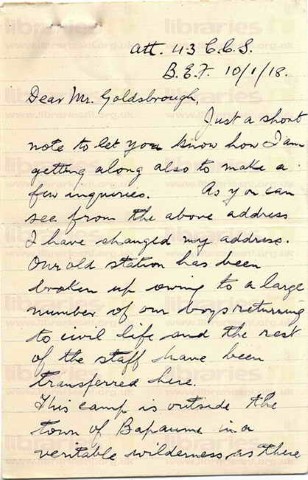 att. 43 C.C.S.
B.E.F. 10/1/18.
Dear Mr. Goldsbrough,
Just a short
note to let you know how I am
getting along also to make a
few inquiries. As you can
see from the above address
I have changed my address.
Our old station has been
broken up owing to a large
number of our boys returning
to civil life and the rest
of the staff have been
transferred here.
This camp is outside the
town of Bapaume in a
veritable wilderness as there